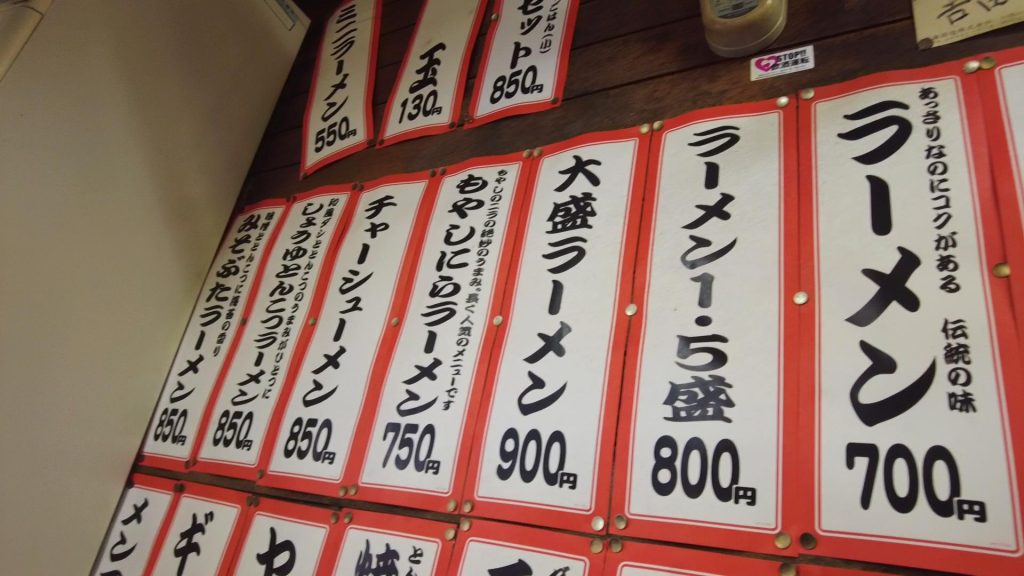 あっさりなのにコクがある 伝統の味
ラーメン
700円
ラーメン1.5盛
800円
大盛ラーメン
900円
もやしとニラの絶妙のうまみ。長く人気のメニューです
もやしにらラーメン
750円
チャーシューメン
850円
しょうゆとんこつラーメン
850円
みそぶたラーメン
850円
ごはん(小)
セット
850円
玉
130円
ミニラーメン
550円
STOP!!
メン
ギ